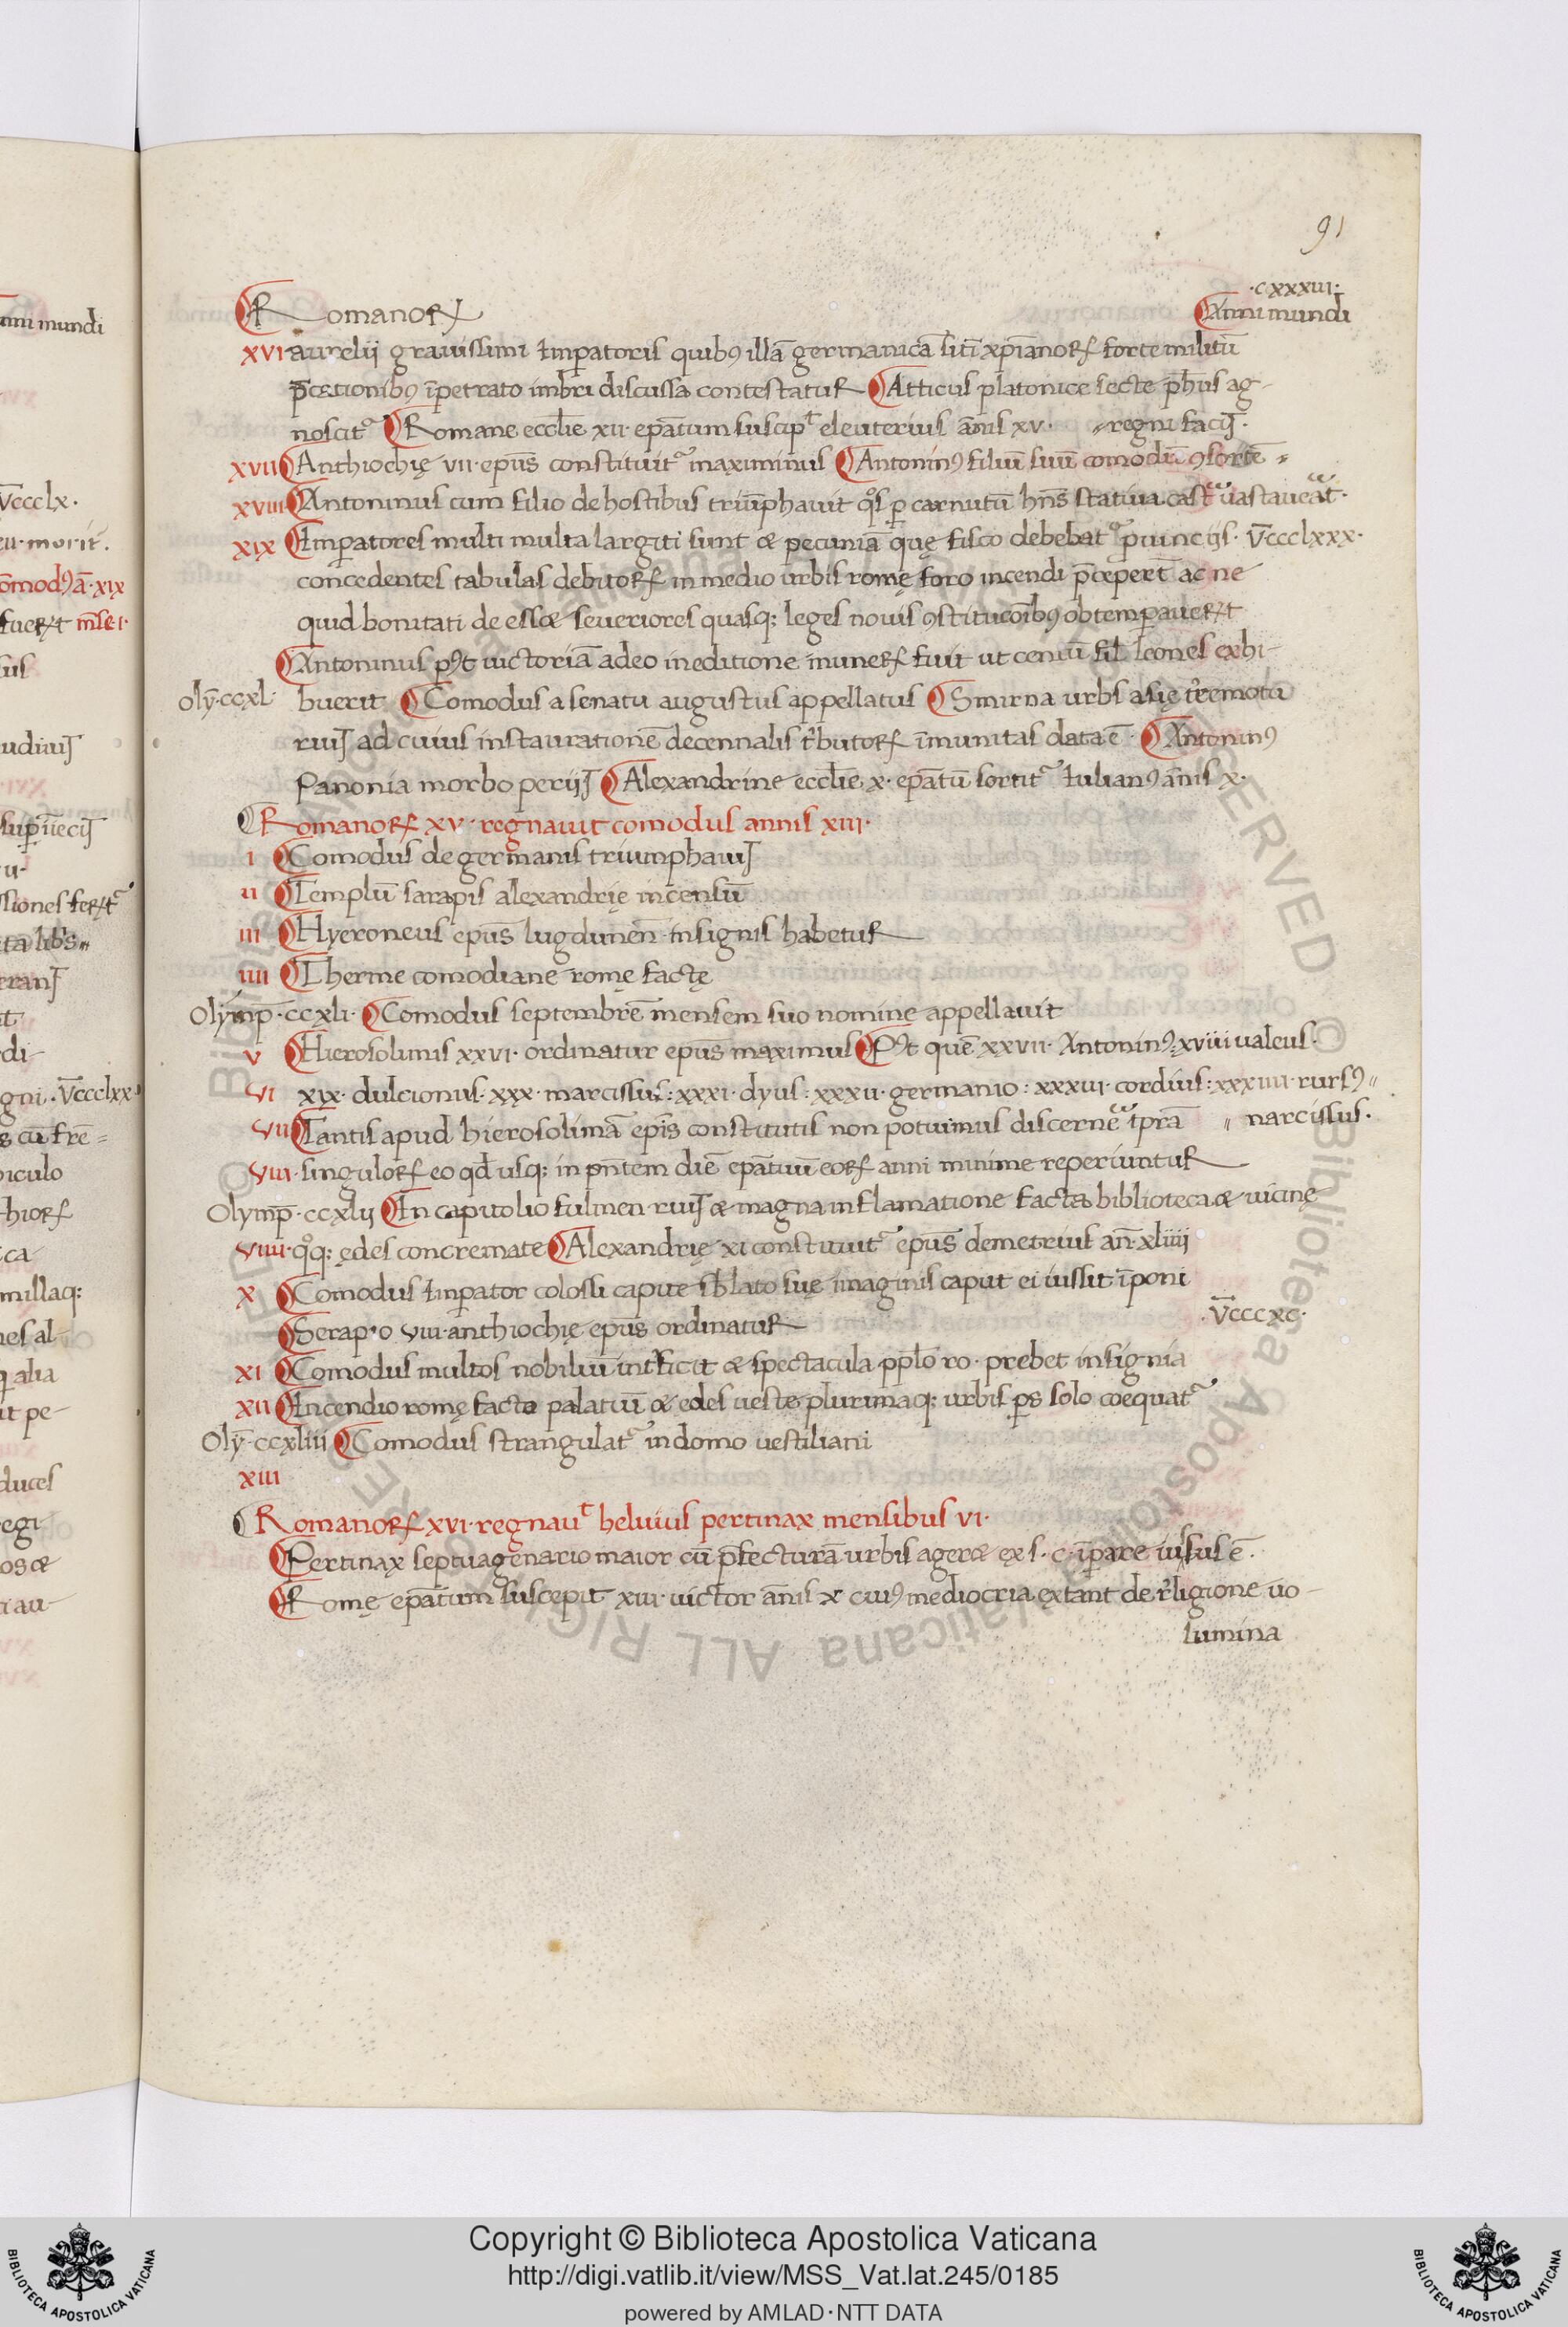 91
·cxxxiii·
Romanorꝝ Anni mundi
xvi aurelii grauissimi Imꝑatoris quibꝯ illā germanicā sitī xp̄ianorꝝ forte militū
p̄cationibꝯ īpetrato imbri discussā contestatur Atticus platonice secte ph̄us ag-
noscit᷑ Romane eccl̄ie xii· ep̄atum suscip̄t eleuterius ānis xv· ⸗ regni facit·
xvii Anthiochię vii· ep̄us constituit᷑ maximinus Antoninꝯ filiū suū comodū ꝯsortē ⸗
xviii Antoninus cum filio de hostibus triūphauit qͦs ꝑ carnutū hn̄s statiua castᵃ uastaueᵃt·
xix Imꝑatores multi multa largiti sunt & pecuniā quę fisco debebat᷑ ꝓuinciis· V̄ccclxxx·
concedentes tabulas debitorꝝ in medio urbis romę foro incendi p̄cepert̄ ac ne
quid bonitati deess& seueriores quasqꝫ leges nouis ꝯstitucōibꝯ obtemꝑauerꝝt
Antoninus pꝰt uictoriā adeo in editione munerꝝ fuit ut centū sil̄ leones exhi-
olȳ·ccxl· buerit Comodus a senatu augustus appellatus Smirna urbs asię tͬremotu
ruit ad cuius instaurationē decennalis tͥbutorꝝ īmunitas data ē· Antoninꝯ
Panonia morbo periit Alexandrine eccl̄ie x· ep̄atū sortit᷑ Iulianꝯ ānis x·
Romanorꝝ xv· regnauit comodus annis xiii·
i Comodus de germanis triumphauit
ii Templū sarapis alexandrię incensū
iii Hyeroneus ep̄us lugdunen̄ insignis habetur
iiii Therme comodiane romę factę
Olymp̄·ccxli· Comodus septembrē mensem suo nomine appellauit
v Hierosolimis xxvi· ordinatur ep̄us maximus Pꝰt quē xxvii· Antoninꝯ xviii ualeus·
vi xix· dulcionus· xxx· marcissus: xxxi· dyus: xxxii· germanio: xxxiii· cordius: xxxiiii· rursꝯ ⸗
vii Tantis apud hierosolimā ep̄is constitutis non potuimus discerneᵃ tp̄ra ⸗ narcissus·
viii· singulorꝝ eo qd̄ usqꝫ in pn̄tem diē ep̄atuū eorꝝ anni minime reperiuntur
Olymp̄·ccxlii In capitolio fulmen ruit & magna inflamatione facta biblioteca & uicinę
viiii· qͦqꝫ ędes concremate Alexandrię xi constituit᷑ ep̄us demetrius an̄·xliiii
x Comodus Imꝑator colossi capite sb̄lato suę imaginis caput ei iussit īponi
V̄cccxc·
Serapio viii· anthiochię ep̄us ordinatur
xi Comodus multos nobiliū int̄ficit & spectacula pplo̅ ro· prebet insignia
xii Incendio romę facto palatiū & edes ueste plurimaqꝫ urbis ꝑs solo coequat᷑
Olȳ·ccxliii Comodus strangulat᷑ in domo uestiliani
xiii
Romanorꝝ xvi· regnauᵗ heluius pertinax mensibus vi·
Pertinax septuagenario maior cū p̄fecturā urbis ager& ex s·c· īꝑare iussus ē·
Romę ep̄atum suscepit xiii· uictor ānis x cuiꝯ mediocria extant de rͤligione uo-
lumina
nni mundi
V̄ccclx·
Copyright © Biblioteca Apostolica Vaticana
http://digi.vatlib.it/view/MSS_Vat.lat.245/0185
powered by AMLAD·NTT DATA
BIBLIOTECA APOSTOLICA VATICANA
BIBLIOTECA APOSTOLICA VATICANA